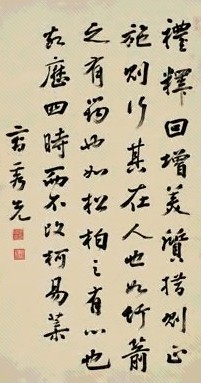 禮釋回增美質措則正
施則行其在人也如竹箭
之有筠也如松柏之有心也
故歷四時而不改柯易葉
曹秀先